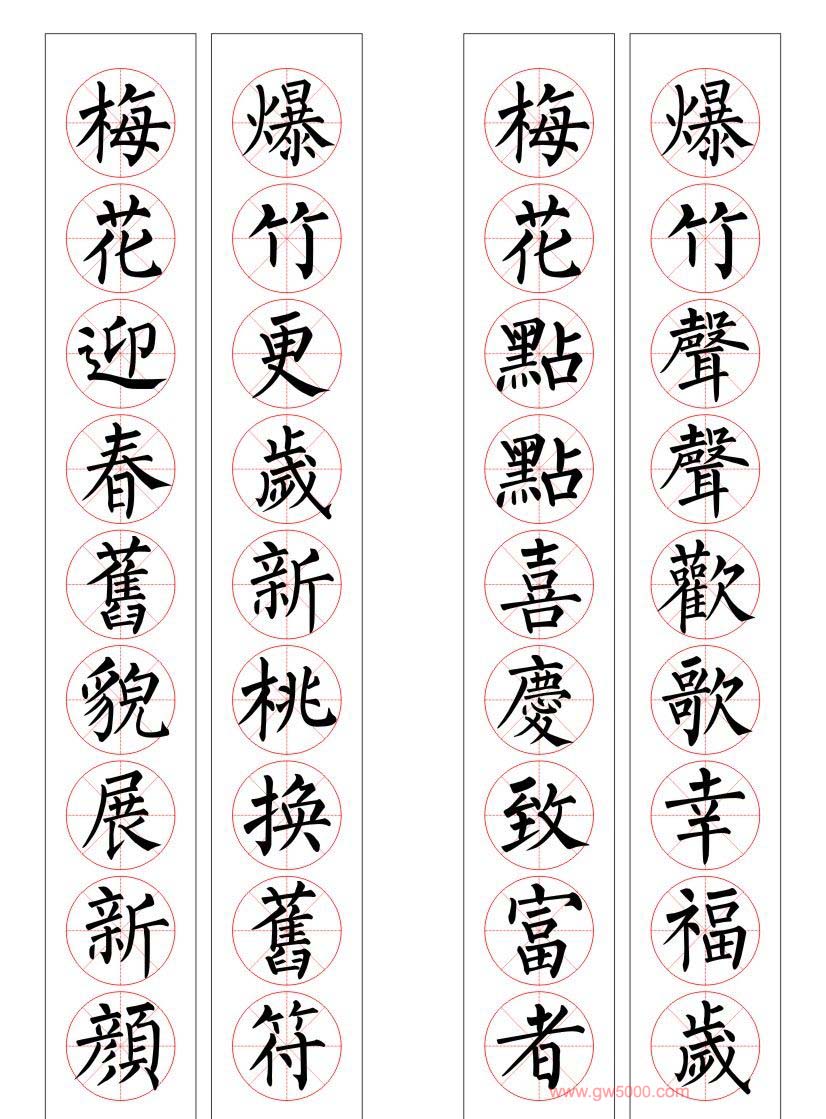 爆竹聲聲歡歌幸福歲
梅花點點喜慶致富者
爆竹更歲新桃換舊符
梅花迎春舊貌展新顔
www.gw5000.com